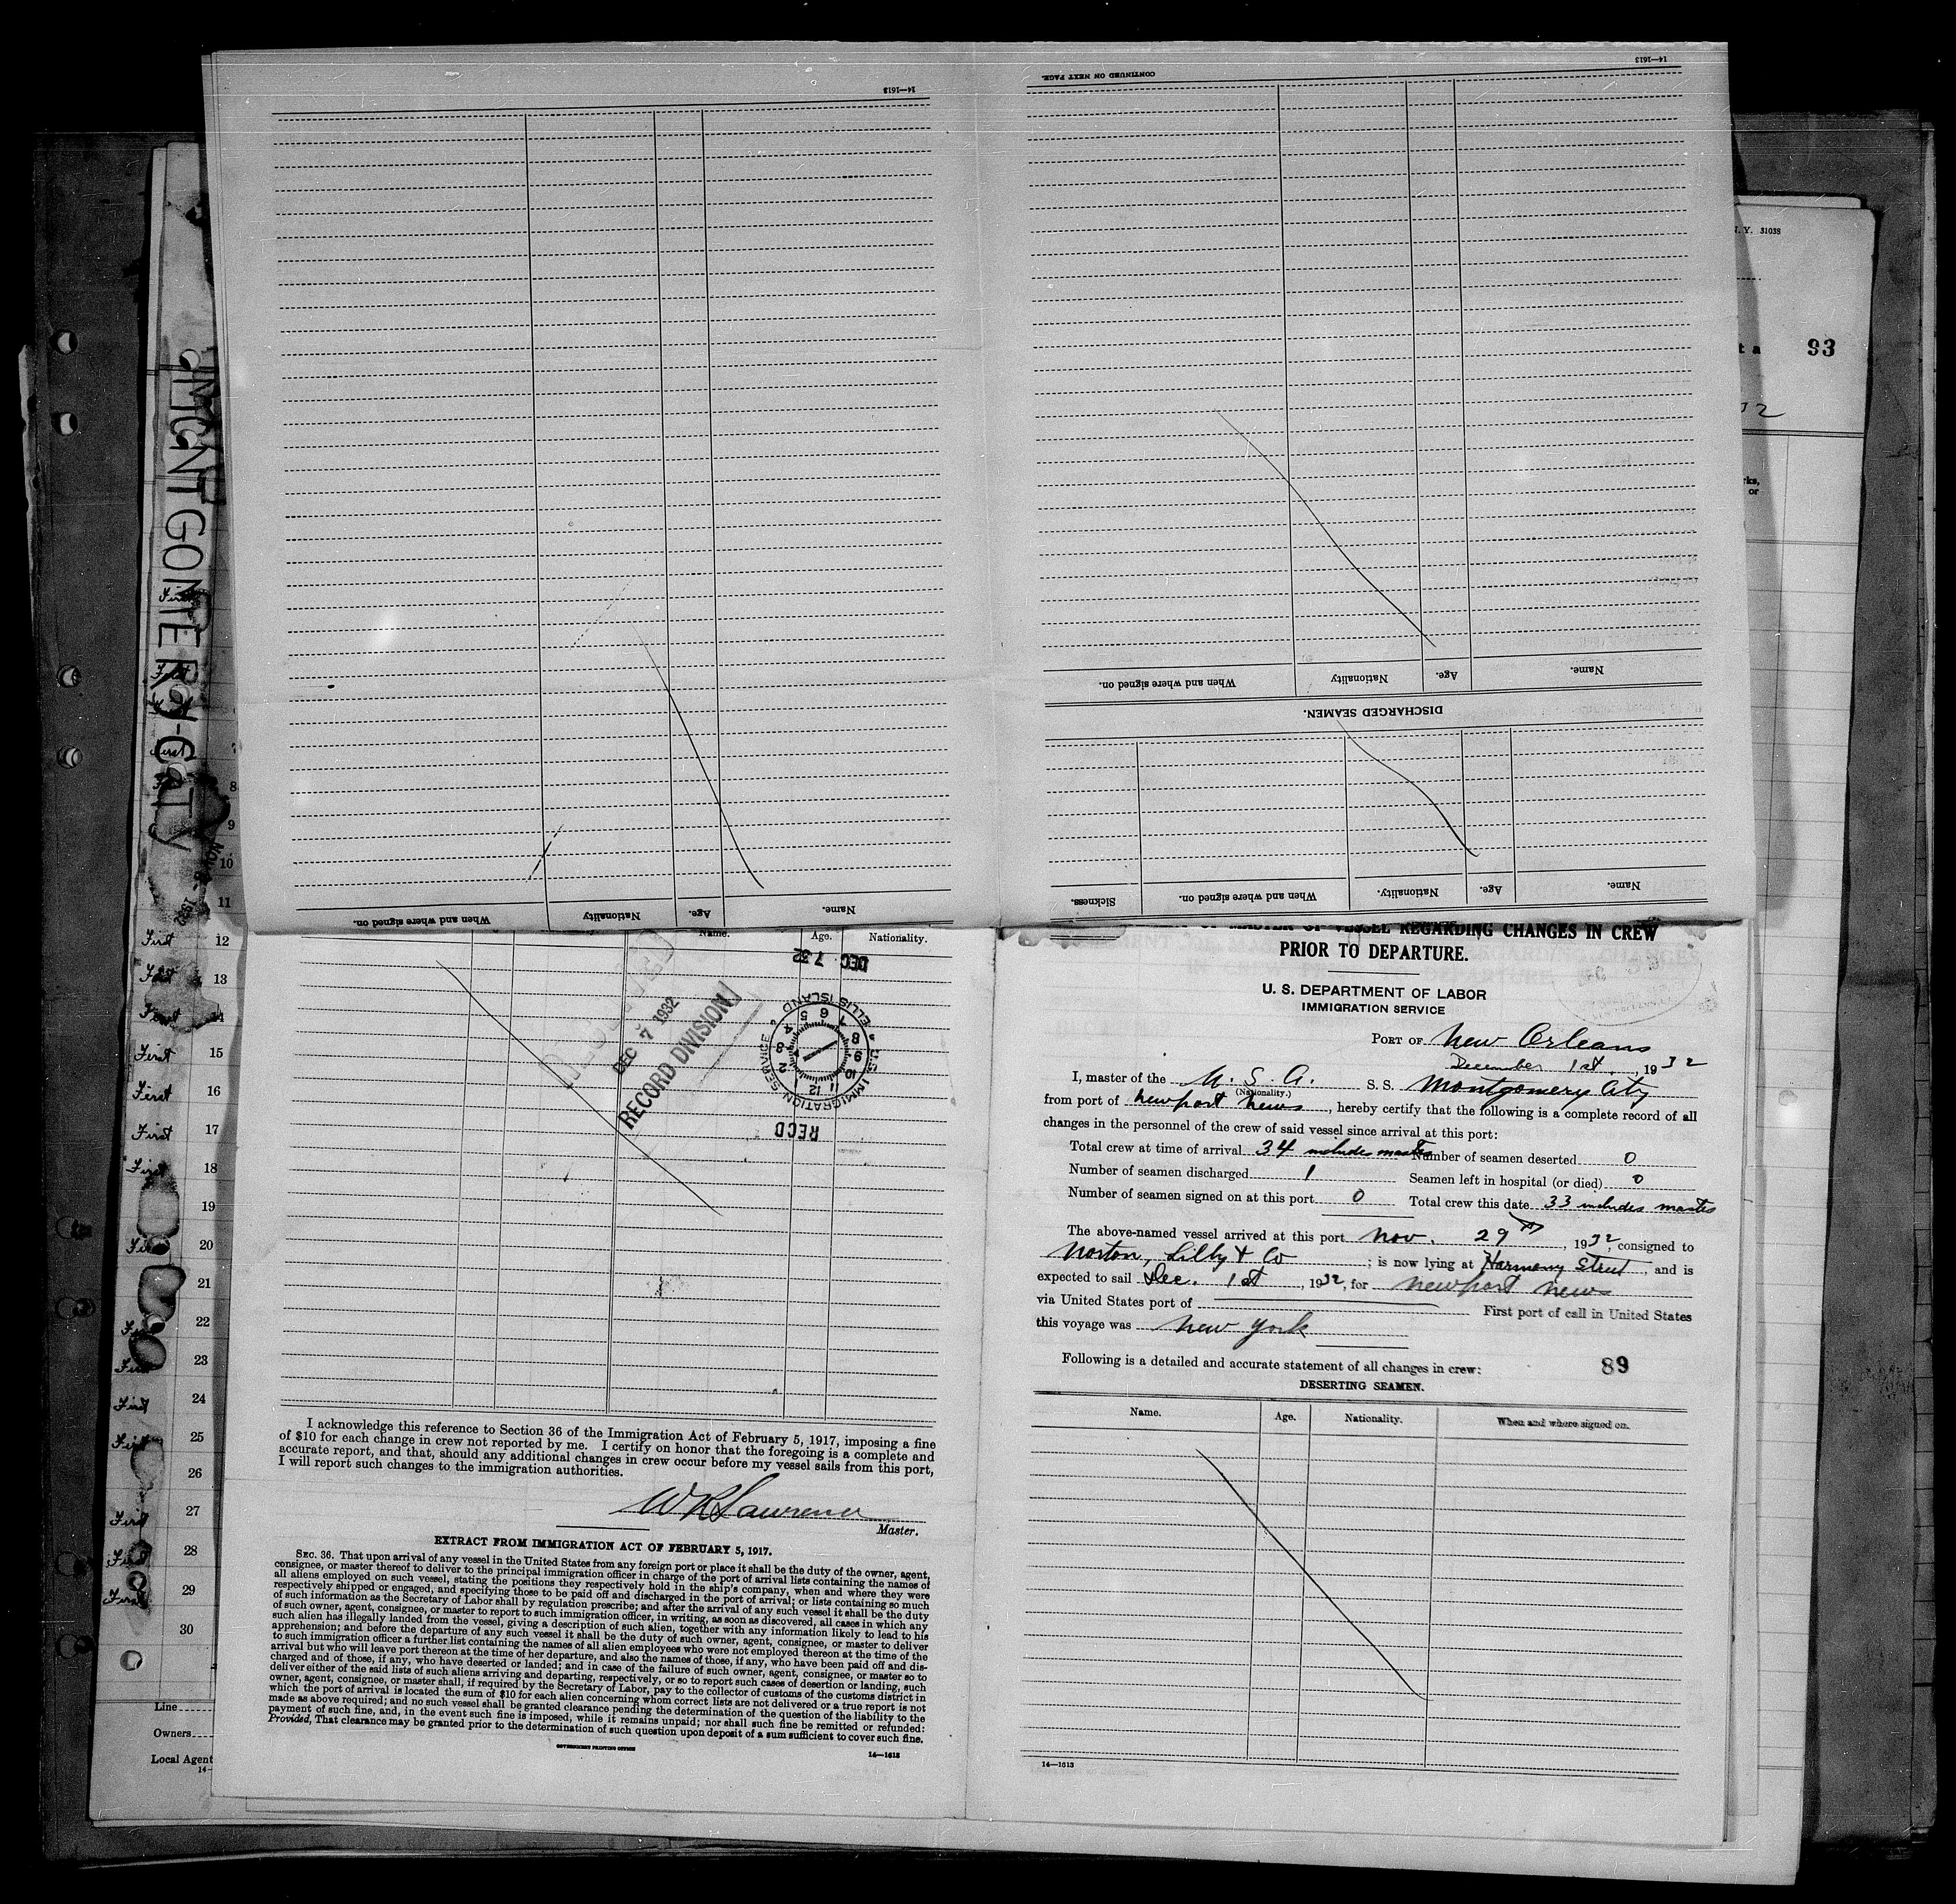 14—1613
CONTINUED ON NEXT PAGE.
14—1613
When and where signed on.
Nationality
Age.
Name.
When and where signed on.
Nationality
Age.
Name.
DISCHARGED SEAMEN.
Sickness.
When and where signed on.
Nationality.
Age.
Name.
N. Y. 31038
t a 93
32
rks,
or
MONTGOMERY CITY
First
First
First
First
7
8
9
10
11
First 12
First 13
First 14
First 15
First 16
First 17
First 18
19
First 20
21
First 22
First 23
First 24
First 25
26
First 27
First 28
First 29
30
Line
Owners
Local Agent
14-
Name. Age. Nationality.
DEC 7 1932
RECORD DIVISION
DEC 7 32
U.S. IMMIGRATION SERVICE
ELLIS ISLAND
RECD
I acknowledge this reference to Section 36 of the Immigration Act of February 5, 1917, imposing a fine
of $10 for each change in crew not reported by me. I certify on honor that the foregoing is a complete and
accurate report, and that, should any additional changes in crew occur before my vessel sails from this port,
I will report such changes to the immigration authorities.
W R Lawrence
Master.
EXTRACT FROM IMMIGRATION ACT OF FEBRUARY 5, 1917.
SEC. 36. That upon arrival of any vessel in the United States from any foreign port or place it shall be the duty of the owner, agent,
consignee, or master thereof to deliver to the principal immigration officer in charge of the port of arrival lists containing the names of
all aliens employed on such vessel, stating the positions they respectively hold in the ship's company, when and where they were
respectively shipped or engaged, and specifying those to be paid off and discharged in the port of arrival; or lists containing so much
of such information as the Secretary of Labor shall by regulation prescribe; and after the arrival of any such vessel it shall be the duty
of such owner, agent, consignee, or master to report to such immigration officer, in writing, as soon as discovered, all cases in which any
such alien has illegally landed from the vessel, giving a description of such alien, together with any information likely to lead to his
apprehension; and before the departure of any such vessel it shall be the duty of such owner, agent, consignee, or master to deliver
to such immigration officer a further list containing the names of all alien employees who were not employed thereon at the time of the
arrival but who will leave port thereon at the time of her departure, and also the names of those, if any, who have been paid off and dis-
charged and of those, if any, who have deserted or landed; and in case of the failure of such owner, agent, consignee, or master so to
deliver either of the said lists of such aliens arriving and departing, respectively, or so to report such cases of desertion or landing, such
owner, agent, consignee, or master shall, if required by the Secretary of Labor, pay to the collector of customs of the customs district in
which the port of arrival is located the sum of $10 for each alien concerning whom correct lists are not delivered or a true report is not
made as above required; and no such vessel shall be granted clearance pending the determination of the question of the liability to the
payment of such fine, and, in the event such fine is imposed, while it remains unpaid; nor shall such fine be remitted or refunded:
Provided, That clearance may be granted prior to the determination of such question upon deposit of a sum sufficient to cover such fine.
GOVERNMENT PRINTING OFFICE
14—1613
OF MASTER OF VESSEL REGARDING CHANGES IN CREW
PRIOR TO DEPARTURE.
U. S. DEPARTMENT OF LABOR
IMMIGRATION SERVICE
PORT OF New Orleans
December 1st, 1932
I, master of the U. S. A. S. S. Montgomery City
(Nationality.)
from port of Newport News, hereby certify that the following is a complete record of all
changes in the personnel of the crew of said vessel since arrival at this port:
Total crew at time of arrival 34 includes master Number of seamen deserted 0
Number of seamen discharged 1 Seamen left in hospital (or died) 0
Number of seamen signed on at this port 0 Total crew this date 33 includes master
The above-named vessel arrived at this port Nov. 29th, 1932, consigned to
Norton, Lilly & Co; is now lying at Harmony Street, and is
expected to sail Dec. 1st, 1932, for Newport News
via United States port of First port of call in United States
this voyage was New York
Following is a detailed and accurate statement of all changes in crew: 89
DESERTING SEAMEN.
Name. Age. Nationality. When and where signed on.
14—1613